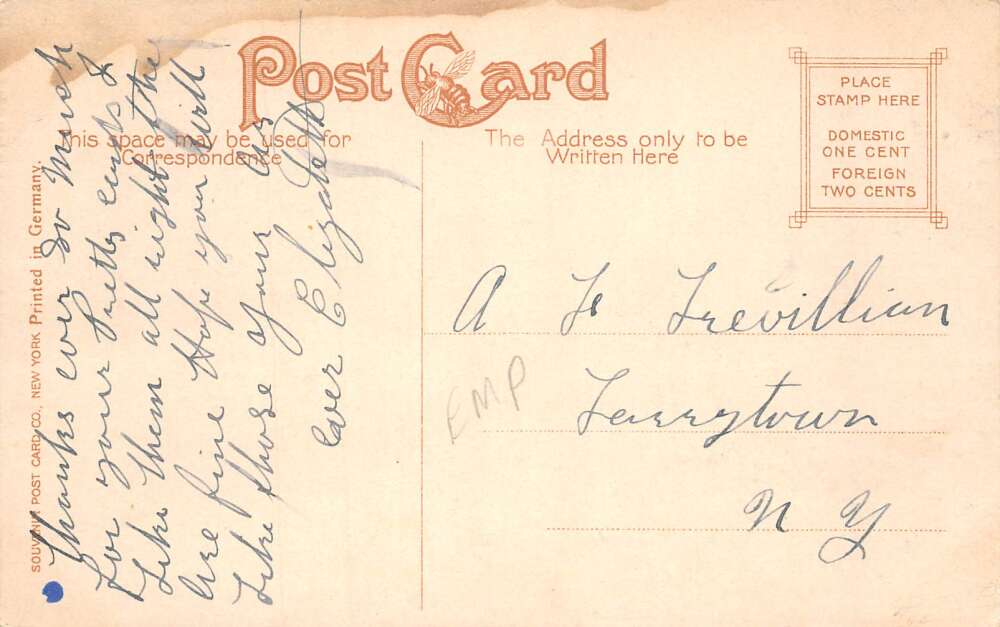 Post Card
This space may be used for
Correspondence
The Address only to be
Written Here
PLACE
STAMP HERE
DOMESTIC
ONE CENT
FOREIGN
TWO CENTS
SOUVENIR POST CARD CO., NEW YORK Printed in Germany.
Thanks ever so much
for your pretty cards &
Like them all right the
are fine Hope you will
Like those of yours
Ever Elizabeth
A F Trevillian
Tarrytown
N Y
EMP